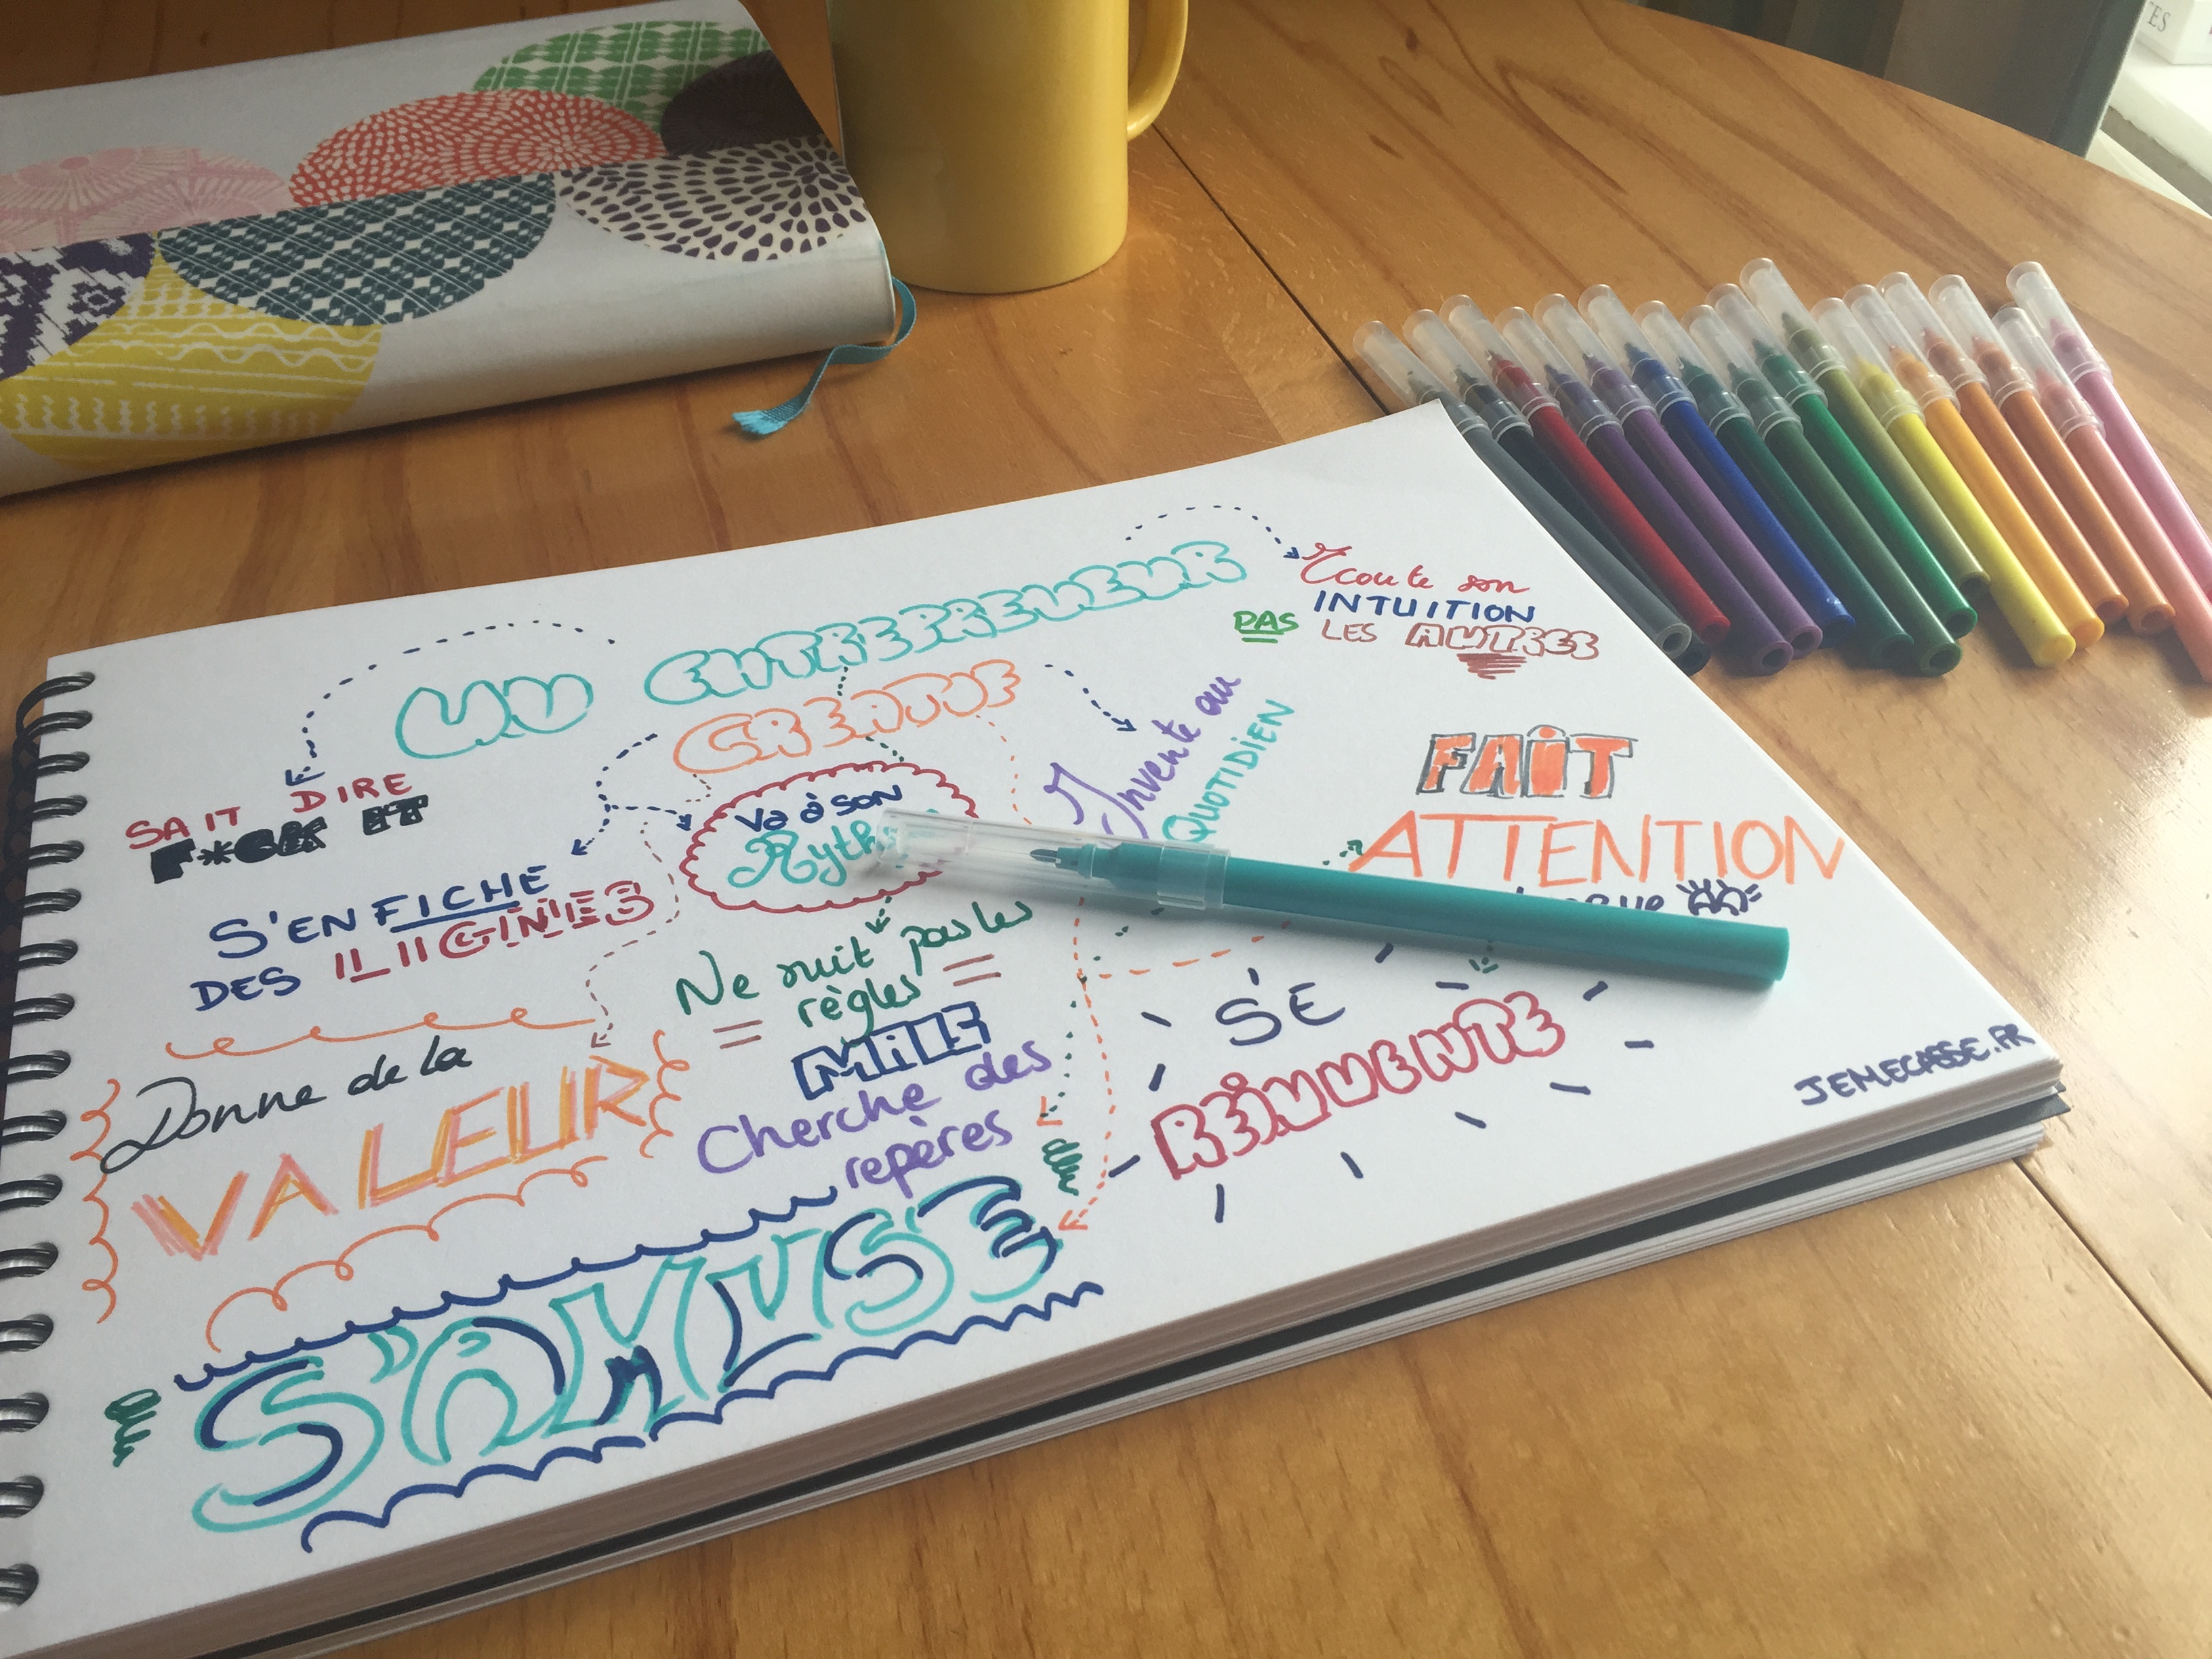 UN ENTREPRENEUR
CREATIF
Ecoute son
INTUITION
PAS LES AUTRES
SAIT DIRE
F*CK IT
Va à son
Invente au
QUOTIDIEN
FAIT
ATTENTION
S'EN FICHE
DES LIGNES
Ne suit pas les
règles
MILLE
Cherche des
repères
Donne de la
VALEUR
SE
RÉINVENTE
S'AMUSE
JEMECASSE.FR
TES